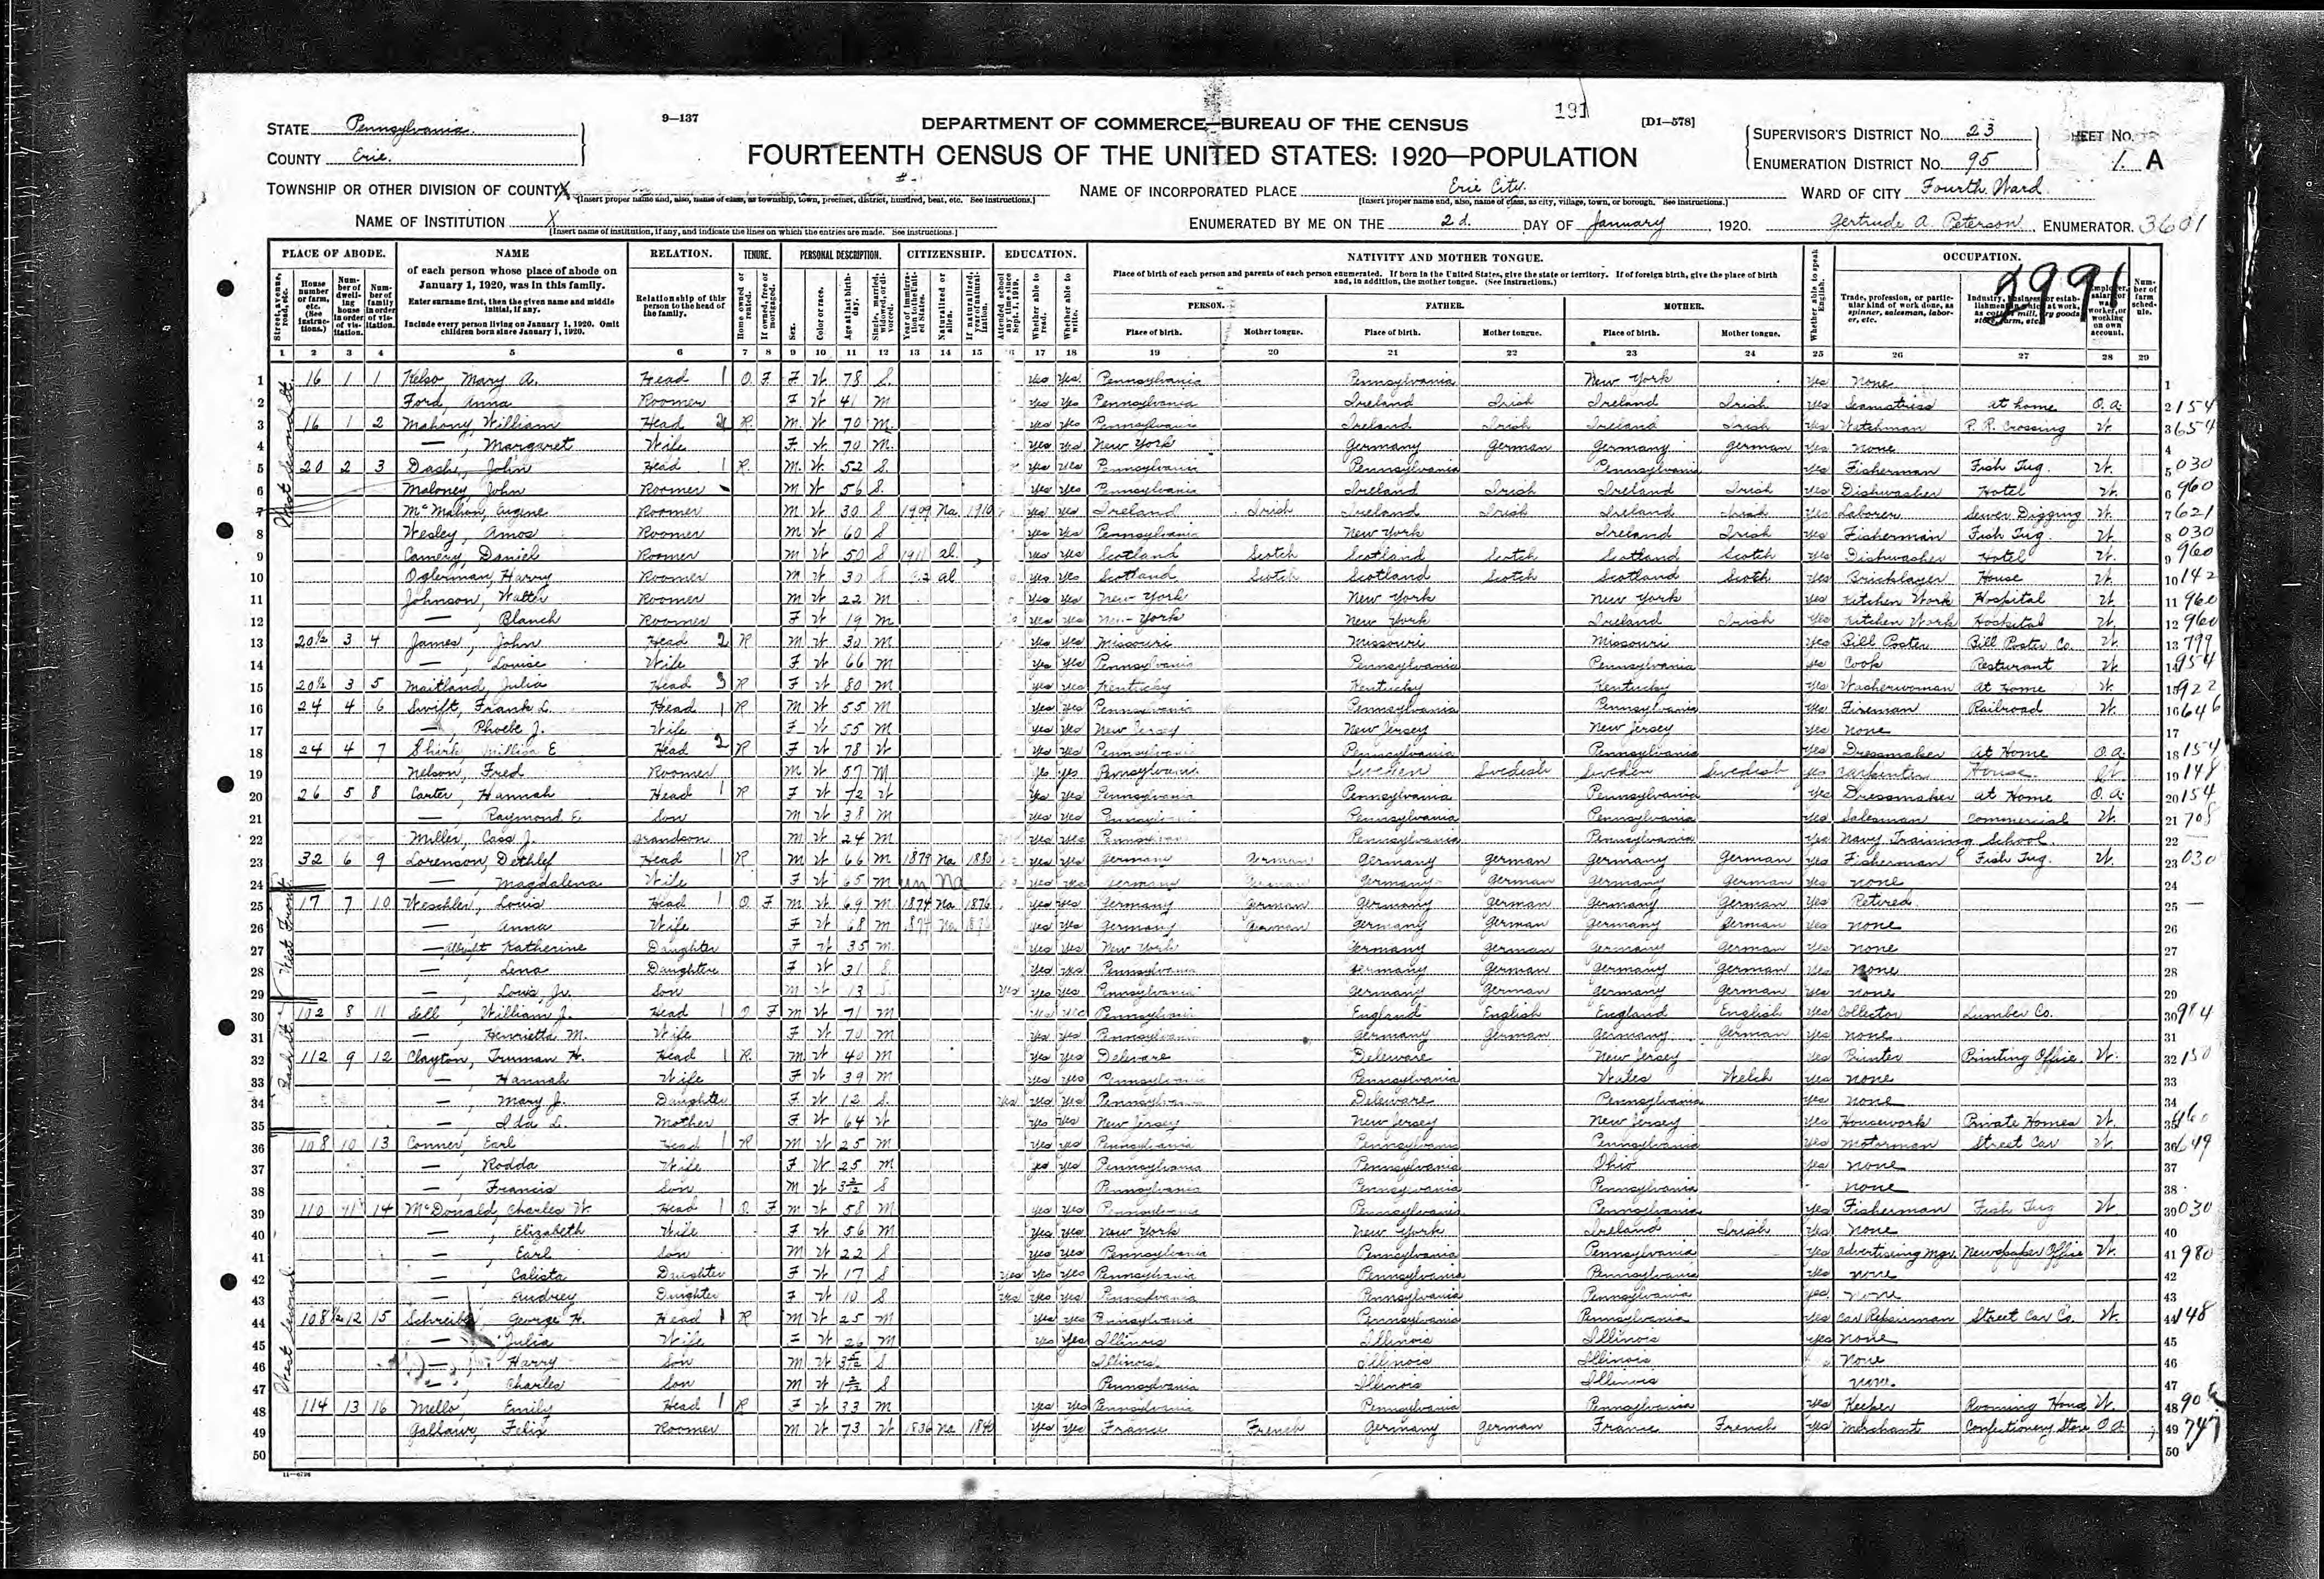 191
STATE Pennsylvania. 9—137 DEPARTMENT OF COMMERCE—BUREAU OF THE CENSUS [D1—578] SUPERVISOR'S DISTRICT NO. 23 SHEET NO.
COUNTY Erie. FOURTEENTH CENSUS OF THE UNITED STATES: 1920—POPULATION ENUMERATION DISTRICT NO. 95 1 A
TOWNSHIP OR OTHER DIVISION OF COUNTY X NAME OF INCORPORATED PLACE Erie City. WARD OF CITY Fourth Ward
[Insert proper name and, also, name of class, as township, town, precinct, district, hundred, beat, etc. See instructions.] [Insert proper name and, also, name of class, as city, village, town, or borough. See instructions.]
NAME OF INSTITUTION X ENUMERATED BY ME ON THE 2d. DAY OF January, 1920. Gertrude A. Peterson ENUMERATOR. 3601
[Insert name of institution, if any, and indicate the lines on which the entries are made. See instructions.]
PLACE OF ABODE. NAME RELATION. TENURE. PERSONAL DESCRIPTION. CITIZENSHIP. EDUCATION. NATIVITY AND MOTHER TONGUE. Whether able to speak English. OCCUPATION.
of each person whose place of abode on January 1, 1920, was in this family.
Enter surname first, then the given name and middle initial, if any.
Include every person living on January 1, 1920. Omit children born since January 1, 1920.
Relationship of this person to the head of the family.
Place of birth of each person and parents of each person enumerated. If born in the United States, give the state or territory. If of foreign birth, give the place of birth and, in addition, the mother tongue. (See instructions.)
PERSON. FATHER. MOTHER.
Place of birth. Mother tongue. Place of birth. Mother tongue. Place of birth. Mother tongue.
1 2 3 4 5 6 7 8 9 10 11 12 13 14 15 16 17 18 19 20 21 22 23 24 25 26 27 28 29
1 16 1 1 Kelso, Mary A. Head 1 O F F W 78 S yes yes Pennsylvania Pennsylvania New York yes none 1
2 Ford, Anna Roomer F W 41 M yes yes Pennsylvania Ireland Irish Ireland Irish yes Seamstress at home O.A. 2 154
3 16 1 2 Mahony, William Head 2 R M W 70 M yes yes Pennsylvania Ireland Irish Ireland Irish yes Watchman R.R. Crossing W 3 654
4 —, Margaret Wife F W 70 M yes yes New York Germany German Germany German yes none 4
5 20 2 3 Dash, John Head 1 R M W 52 S yes yes Pennsylvania Pennsylvania Pennsylvania yes Fisherman Fish Tug. W 5 030
6 Maloney, John Roomer M W 56 S yes yes Pennsylvania Ireland Irish Ireland Irish yes Dishwasher Hotel W 6 960
7 McMahon, Eugene Roomer M W 30 S 1909 Na 1910 yes yes Ireland Irish Ireland Irish Ireland Irish yes Laborer Sewer Digging W 7 621
8 Wesley, Amos Roomer M W 60 S yes yes Pennsylvania New York Ireland Irish yes Fisherman Fish Tug. W 8 030
9 Camery, Daniel Roomer M W 50 S 1911 al yes yes Scotland Scotch Scotland Scotch Scotland Scotch yes Dishwasher Hotel W 9 960
10 Oglerman, Harry Roomer M W 30 S al yes yes Scotland Scotch Scotland Scotch Scotland Scotch yes Bricklayer House W 10 142
11 Johnson, Walter Roomer M W 22 M yes yes New York New York New York yes Kitchen Work Hospital W 11 960
12 —, Blanch Roomer F W 19 M yes yes New York New York Ireland Irish yes Kitchen Work Hospital W 12 960
13 20½ 3 4 James, John Head 2 R M W 30 M yes yes Missouri Missouri Missouri yes Bill Poster Bill Poster Co. W 13 799
14 —, Louise Wife F W 66 M yes yes Pennsylvania Pennsylvania Pennsylvania yes Cook Resturant W 14 954
15 20½ 3 5 Maitland, Julia Head 3 R F W 80 M yes yes Kentucky Kentucky Kentucky yes Washerwoman At Home W 15 922
16 24 4 6 Swift, Frank L. Head 1 R M W 55 M yes yes Pennsylvania Pennsylvania Pennsylvania yes Fireman Railroad W 16 646
17 —, Phoebe J. Wife F W 55 M yes yes New Jersey New Jersey New Jersey yes none 17
18 24 4 7 Shirk, E Head 2 R F W 78 W yes yes Pennsylvania Pennsylvania Pennsylvania yes Dressmaker At Home O.A. 18 154
19 Nelson, Fred Roomer M W 57 M yes yes Pennsylvania Sweden Swedish Sweden Swedish yes Carpenter House. W 19 148
20 26 5 8 Carter, Hannah Head 1 R F W 72 W yes yes Pennsylvania Pennsylvania Pennsylvania yes Dressmaker At Home O.A. 20 154
21 —, Raymond E Son M W 38 M yes yes Pennsylvania Pennsylvania Pennsylvania yes Salesman Commercial W 21 708
22 Miller, Cass J. Grandson M W 24 M yes yes Pennsylvania Pennsylvania Pennsylvania yes Navy Training School. 22 —
23 32 6 9 Lorenson, Dethlef Head 1 R M W 66 M 1879 Na 1880 yes yes Germany German Germany German Germany German yes Fisherman Fish Tug. W 23 030
24 —, Magdalena Wife F W 65 M un Na yes yes Germany German Germany German Germany German yes none 24
25 17 7 10 Weschler, Louis Head 1 O F M W 69 M 1874 Na 1876 yes yes Germany German Germany German Germany German yes Retired 25 —
26 —, Anna Wife F W 68 M 1874 Na 1876 yes yes Germany German Germany German Germany German yes none 26
27 — Albright Katherine Daughter F W 35 M yes yes New York Germany German Germany German yes none 27
28 —, Lena Daughter F W 31 S yes yes Pennsylvania Germany German Germany German yes none 28
29 —, Louis, Jr. Son M W 13 S yes yes yes Pennsylvania Germany German Germany German yes none 29
30 102 8 11 Sell, William J. Head 1 O F M W 71 M yes yes Pennsylvania England English England English yes Collector Lumber Co. 30 984
31 —, Henrietta M. Wife F W 70 M yes yes Pennsylvania Germany German Germany German yes none 31
32 112 9 12 Clayton, Truman H. Head 1 R M W 40 M yes yes Delware Deleware New Jersey yes Printer Printing Office. W 32 150
33 —, Hannah Wife F W 39 M yes yes Pennsylvania Pennsylvania Wales Welch yes none 33
34 —, Mary J. Daughter F W 12 S yes yes yes Pennsylvania Deleware Pennsylvania yes none 34
35 —, Ida L. Mother F W 64 W yes yes New Jersey New Jersey New Jersey yes Housework Private Homes W 35 960
36 108 10 13 Conner, Earl Head 1 R M W 25 M yes yes Pennsylvania Pennsylvania Pennsylvania yes Motorman Street Car W 36 649
37 —, Rodda Wife F W 25 M yes yes Pennsylvania Pennsylvania Ohio yes none 37
38 —, Francis Son M W S Pennsylvania Pennsylvania Pennsylvania none 38
39 110 11 14 McDonald, Charles W. Head 1 O F M W 58 M yes yes Pennsylvania Pennsylvania Pennsylvania yes Fisherman Fish Tug W 39 030
40 —, Elizabeth Wife F W 56 M yes yes New York New York Ireland Irish yes none 40
41 —, Earl Son M W 22 S yes yes Pennsylvania Pennsylvania Pennsylvania yes Advertising Mgr. Newspaper Office W 41 980
42 —, Calista Daughter F W 17 S yes yes yes Pennsylvania Pennsylvania Pennsylvania yes none 42
43 —, Audrey Daughter F W 10 S yes yes yes Pennsylvania Pennsylvania Pennsylvania yes none 43
44 108½ 12 15 Schreiber, George H. Head 1 R M W 25 M yes yes Pennsylvania Pennsylvania Pennsylvania yes Car Street Car Co. W 44 148
45 —, Julia Wife F W 26 M yes yes Illinois Illinois Illinois yes none 45
46 —, Harry Son M W S Illinois Illinois Illinois none 46
47 —, Charles Son M W S Pennsylvania Illinois Illinois none 47
48 114 13 16 Mello, Emily Head 1 R F W 33 M yes yes Pennsylvania Pennsylvania Pennsylvania yes Keeper Rooming House W 48
49 Felix Roomer M W 73 W 1836 Na 1840 yes yes France French Germany German France French yes Merchant Confectionery Store O.A. 49 747
50 50
11—6726